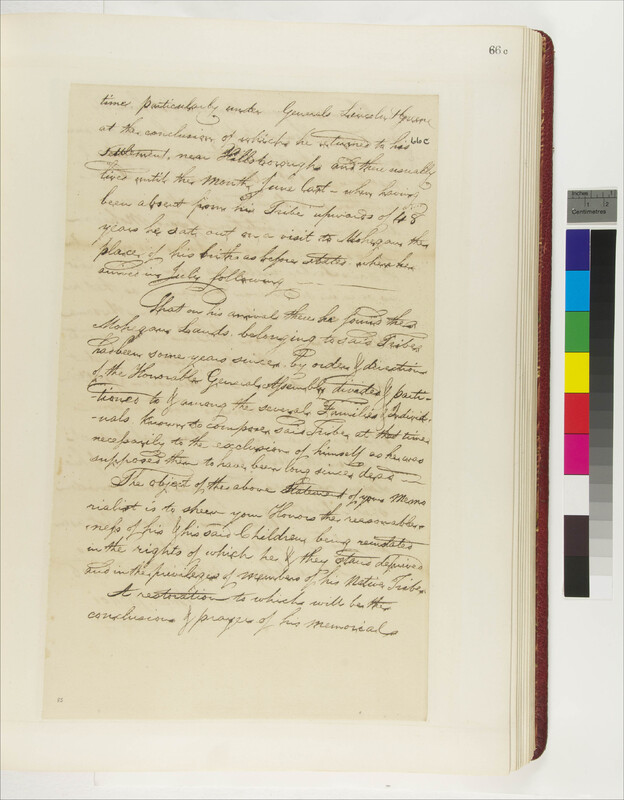 66 c
time particularly under Generals Lincoln & Greene
at the conclusion of which he returned to his 66c
settlement, near Hillsborough and there usually
lived until the Month June last - when having
been absent from his Tribe upwards of 48
years he sat out on a visit to Mohegan the
place of his birth as before stated where he
arrived in July following
That on his arrival there he found the
Mohegan Lands belonging to said Tribe
has been some years since by order & direction
of the Honorable General Assembly divided & parti-
-tioned to & among the several Families & Individ-
-uals known to compose said Tribe at that time
necessarily to the exclusion of himself as he was
supposed them to have been long since dead
The object of the above Statement of your Memo
rialist is to shew your Honors the reasonable-
-ness of his & his said Children being reinstated
in the rights of which he & they stand deprived
and in the privileges of members of his Native Tribe
A restoration to which will be the
conclusion & prayer of his memorial
Inches
1 2
Centimetres